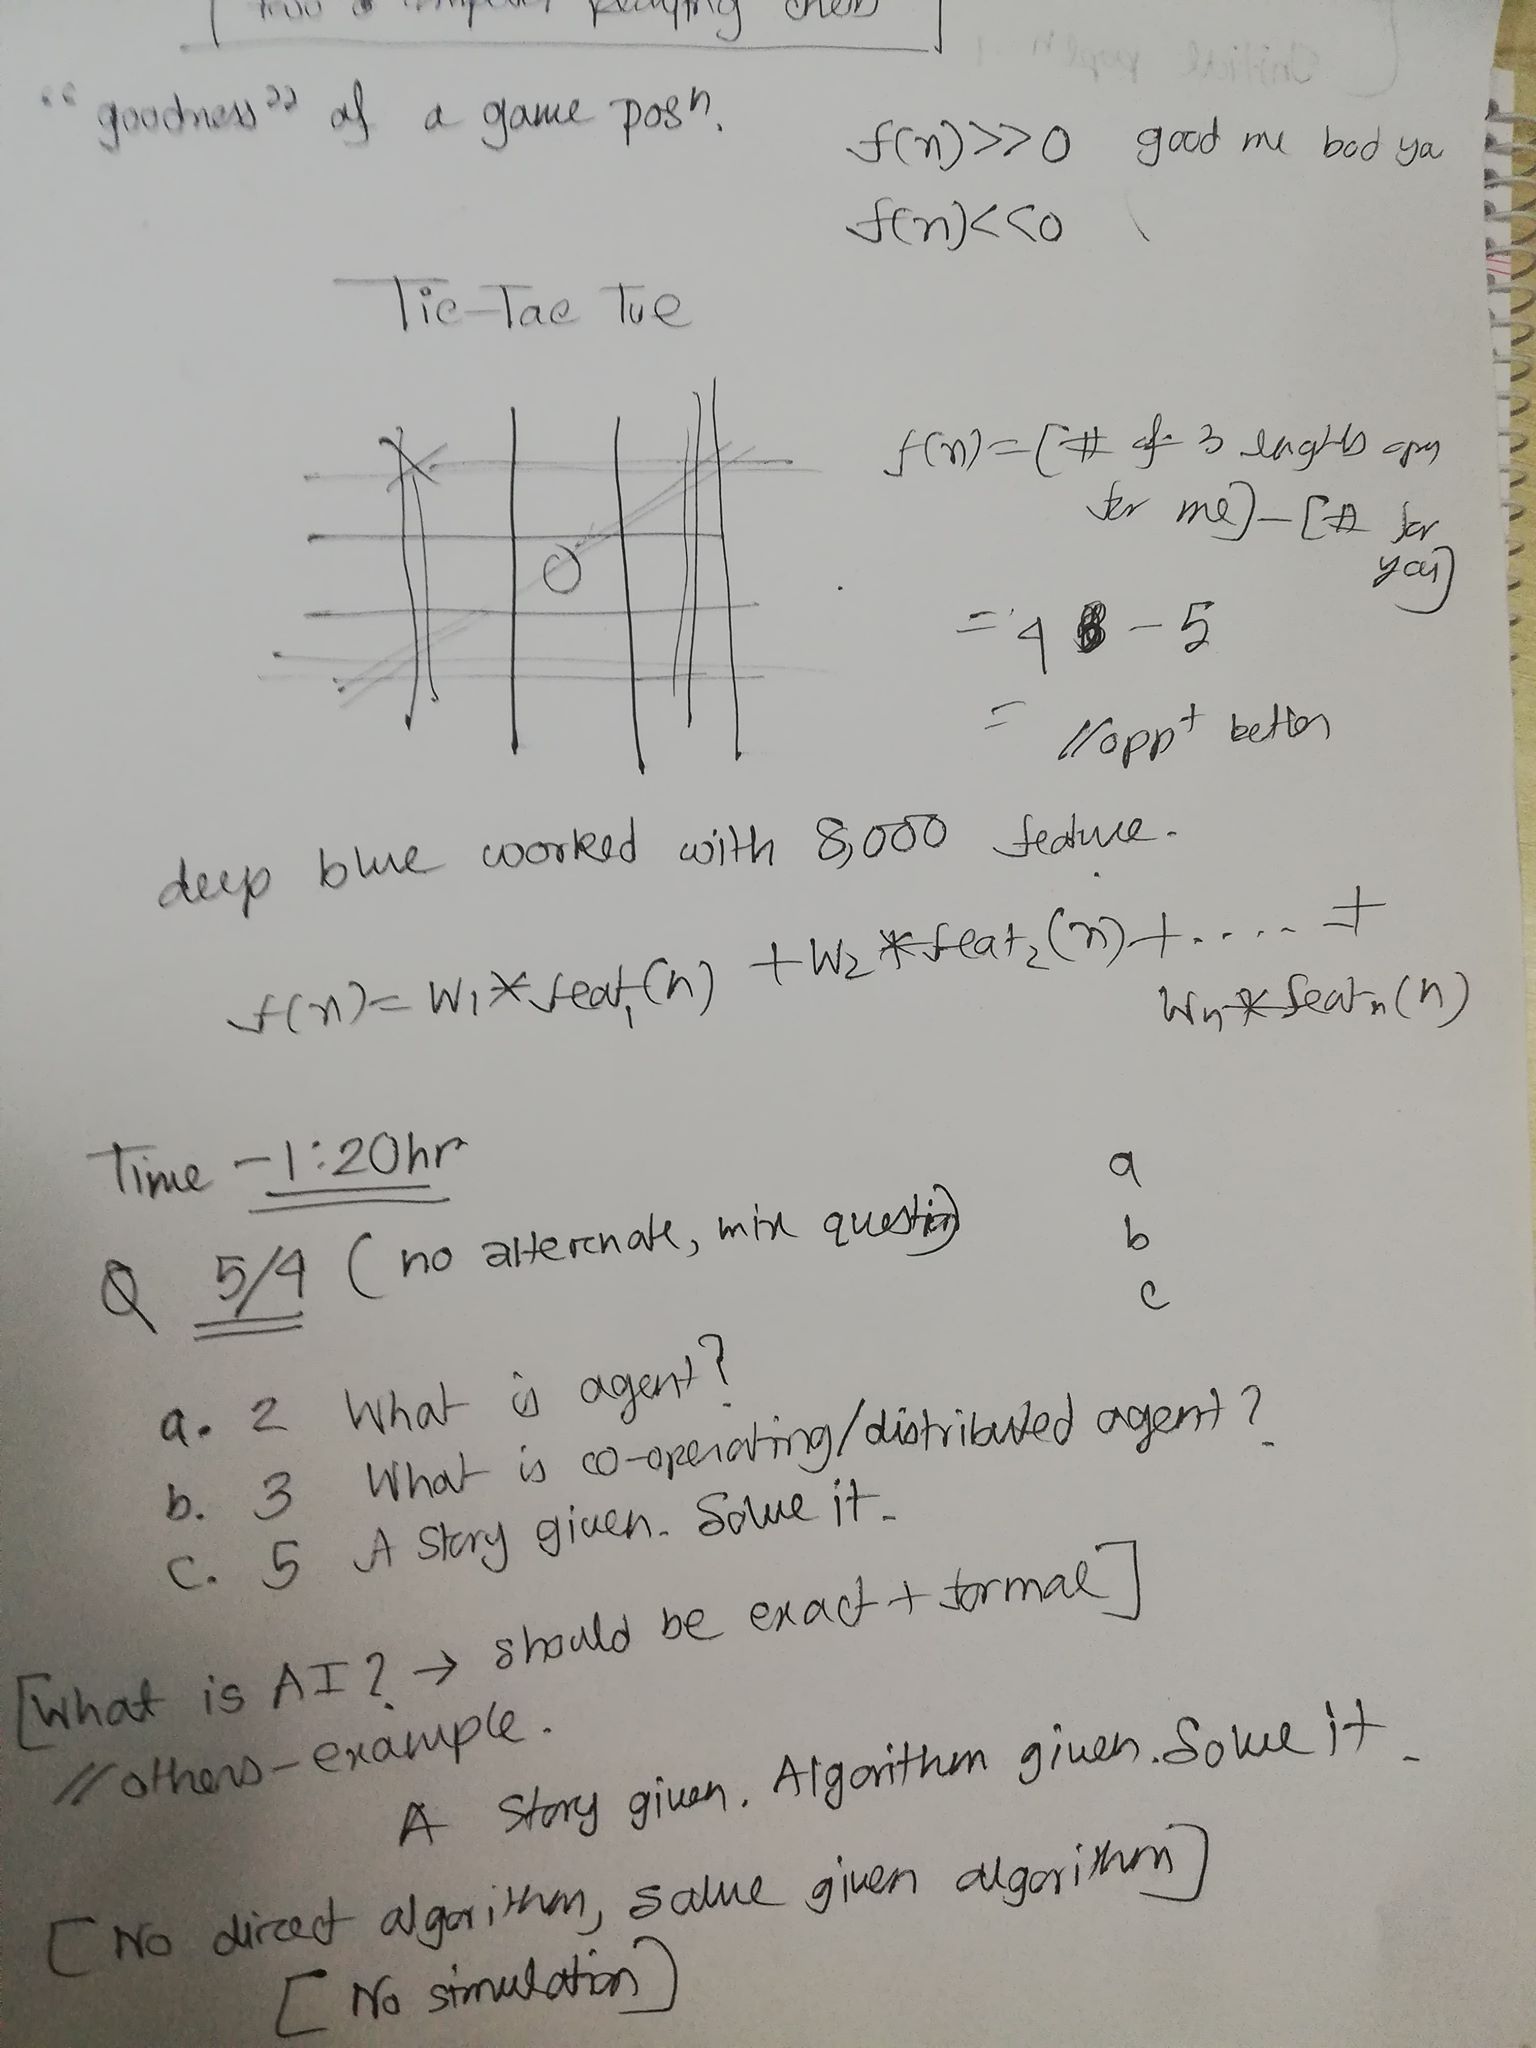 computer playing chess
"goodness" of a game posn.
f(n)>>0 good me bad ya
f(n)<<0
Tic-Tac Tue
X
O
f(n)=[# of 3 lenghts open
for me]-[# for
you]
= 4 - 5
= //oppt better
deep blue worked with 8,000 feature.
f(n)= W1*feat1(n) +W2*feat2(n)+.....+
Wn*featn(n)
Time -1:20hr
Q 5/4 (no alternate, mix question)
a
b
c
a. 2 What is agent?
b. 3 What is co-operating/distributed agent?
c. 5 A story given. Solve it.
[What is AI? → should be exact + formal]
//others-example.
A story given. Algorithm given. Solve it.
[No direct algorithm, solve given algorithm]
[No simulation]